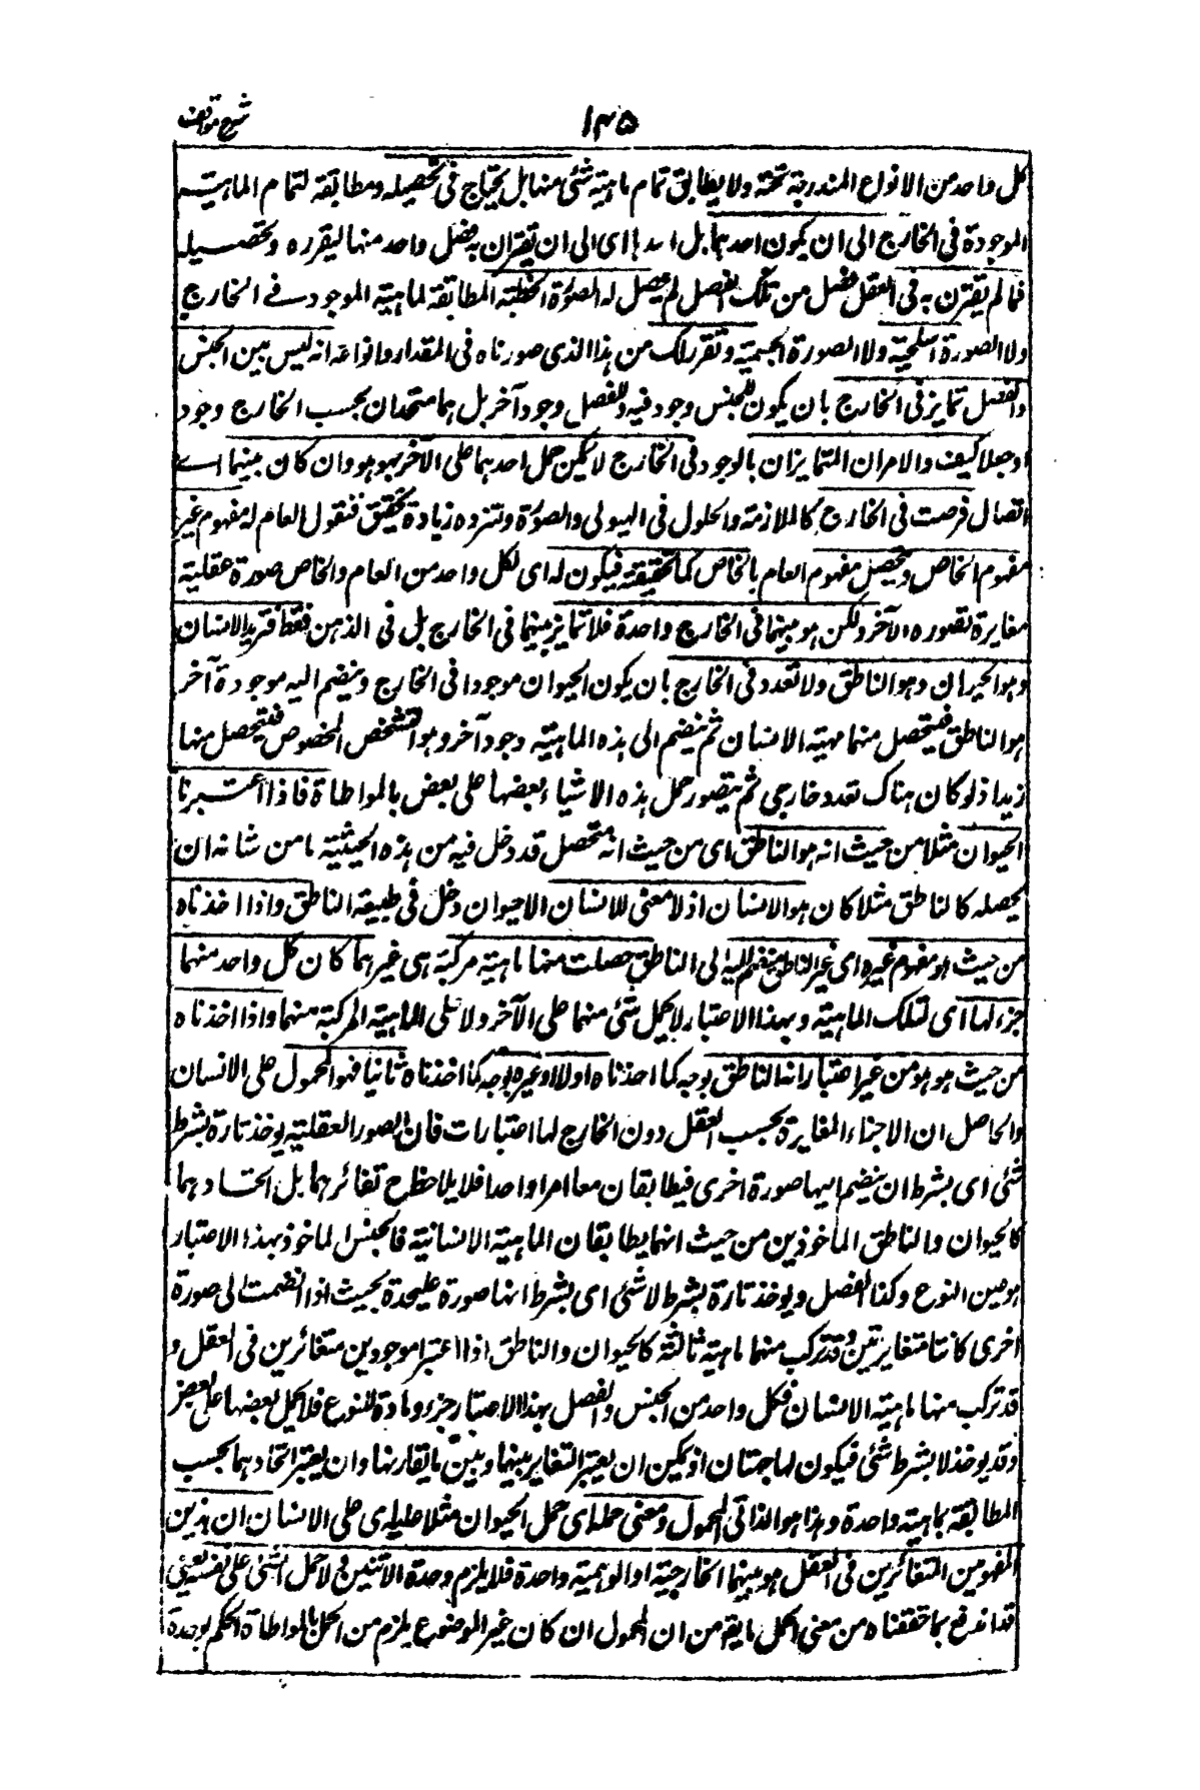 شرح مواقف
١٣٥
كل واحد من الانواع المندرجة تحته ولا يطابق تمام ماهية شئ منها بل يحتاج فى تحصيله ومطابقته لتمام الماهية
الموجودة فى الخارج الى ان يكون احدهما بل اى الى ان يقترن به فصل واحد منها ليقرره وتحصيله
فمالم يقترن به فى العقل فصل من تلك الفصل لم يحصل له الصورة المطابقة لماهية الموجود فى الخارج
ولا الصورة ولا الصورة الجسمية وتقرر لك من هذا الذى صورناه فى المقدار وانواعه انه ليس بين الجنس
والفصل تمايز فى الخارج بان يكون للجنس وجود فيه وللفصل وجود آخر بل هما متحدان بحسب الخارج وجود
اوجعلا كيف والامران المتمايزان بالوجود فى الخارج لا يمكن حمل احدهما على الآخر بهو هو وان كان بينهما اى
اتصال فرضت فى الخارج كالملازمة والحلول فى الهيولى والصورة ونزده زيادة تحقيق فنقول العام له مفهوم غير
مفهوم الخاص ويحصل مفهوم العام بالخاص كما تحقيقته فيكون له اى لكل واحد من العام والخاص صورة عقلية
مغايرة لصورة الآخر ولكن هو بينهما فى الخارج واحدة فلا تمايز بينهما فى الخارج بل فى الذهن فقط فزيد الانسان
وهو الحيوان وهو الناطق ولا تعدد فى الخارج بان يكون الحيوان موجودا فى الخارج وينضم اليه موجودة آخر
هو الناطق فيتحصل منهما مهية الانسان ثم ينضم الى هذه الماهية وجود آخر وهو التشخص المخصوص فيتحصل منها
زيد اذ لو كان هناك تعدد خارجى ثم يتصور حمل هذه الاشياء بعضها على بعض بالمواطاة فاذا اعتبرنا
الحيوان مثلا من حيث انه هو الناطق اى من حيث انه متحصل قد دخل فيه من هذه الحيثية ما من شانه ان
يحصله كالناطق مثلا كان هو الانسان اذ لا معنى للانسان الا حيوان دخل فى طبيعة الناطق واذا اخذناه
من حيث هو مفهوم غيره اى غير الناطق منضم اليه الى الناطق حصلت منهما ماهية مركبة هى غيرهما كان كل واحد منهما
جزء لها اى لتلك الماهية وبهذا الاعتبار لا يحمل شئ منهما على الآخر ولا على الماهية المركبة منهما واذا اخذناه
من حيث هو هو من غير اعتبار انه الناطق بوجه كما اخذناه اولا او غيره بوجه كما اخذناه ثانيا فهو المحمول على الانسان
والحاصل ان الاجزاء المغايرة بحسب العقل دون الخارج لها اعتبارات فان الصور العقلية يوخذ تارة بشرط
شئ اى بشرط ان ينضم اليها صورة اخرى فيطابقان معا امرا واحدا فلا يلاحظ ح تغائرهما بل اتحادهما
كالحيوان والناطق الماخوذين من حيث انهما يطابقان الماهية الانسانية فالجنس الماخوذ بهذا الاعتبار
هو عين النوع وكذا الفصل ويوخذ تارة بشرط لا شئ اى بشرط انها صورة عليحدة بحيث اذا انضمت الى صورة
اخرى كانتا متغايرتين وقد تركب منهما ماهية ثالثة كالحيوان والناطق اذا اعتبرا موجودين متغائرين فى العقل و
قد تركب منهما ماهية الانسان فكل واحد من الجنس والفصل بهذا الاعتبار جزء ومادة للنوع فلا يحمل بعضها على بعض
وقد يوخذ لا بشرط شئ فيكون لها جهتان اذ يمكن ان يعتبر التغاير بينهما وبين ما يقارنها وان يعتبر اتحادهما بحسب
المطابقة بماهية واحدة وهذا هو الذاتى المحمول ومعنى حمله اى حمل الحيوان مثلا عليه اى على الانسان ان هذين
المفهومين المتغائرين فى العقل هو بينهما الخارجية او الوهمية واحدة فلا يلزم وحدة الاثنين ولا حمل الشئ على نفسه يعنى
قد اندفع بما حققناه من معنى الحمل ما يقوم من ان المحمول ان كان غير الموضوع يلزم من الحمل بالمواطاة الحكم بوحدة